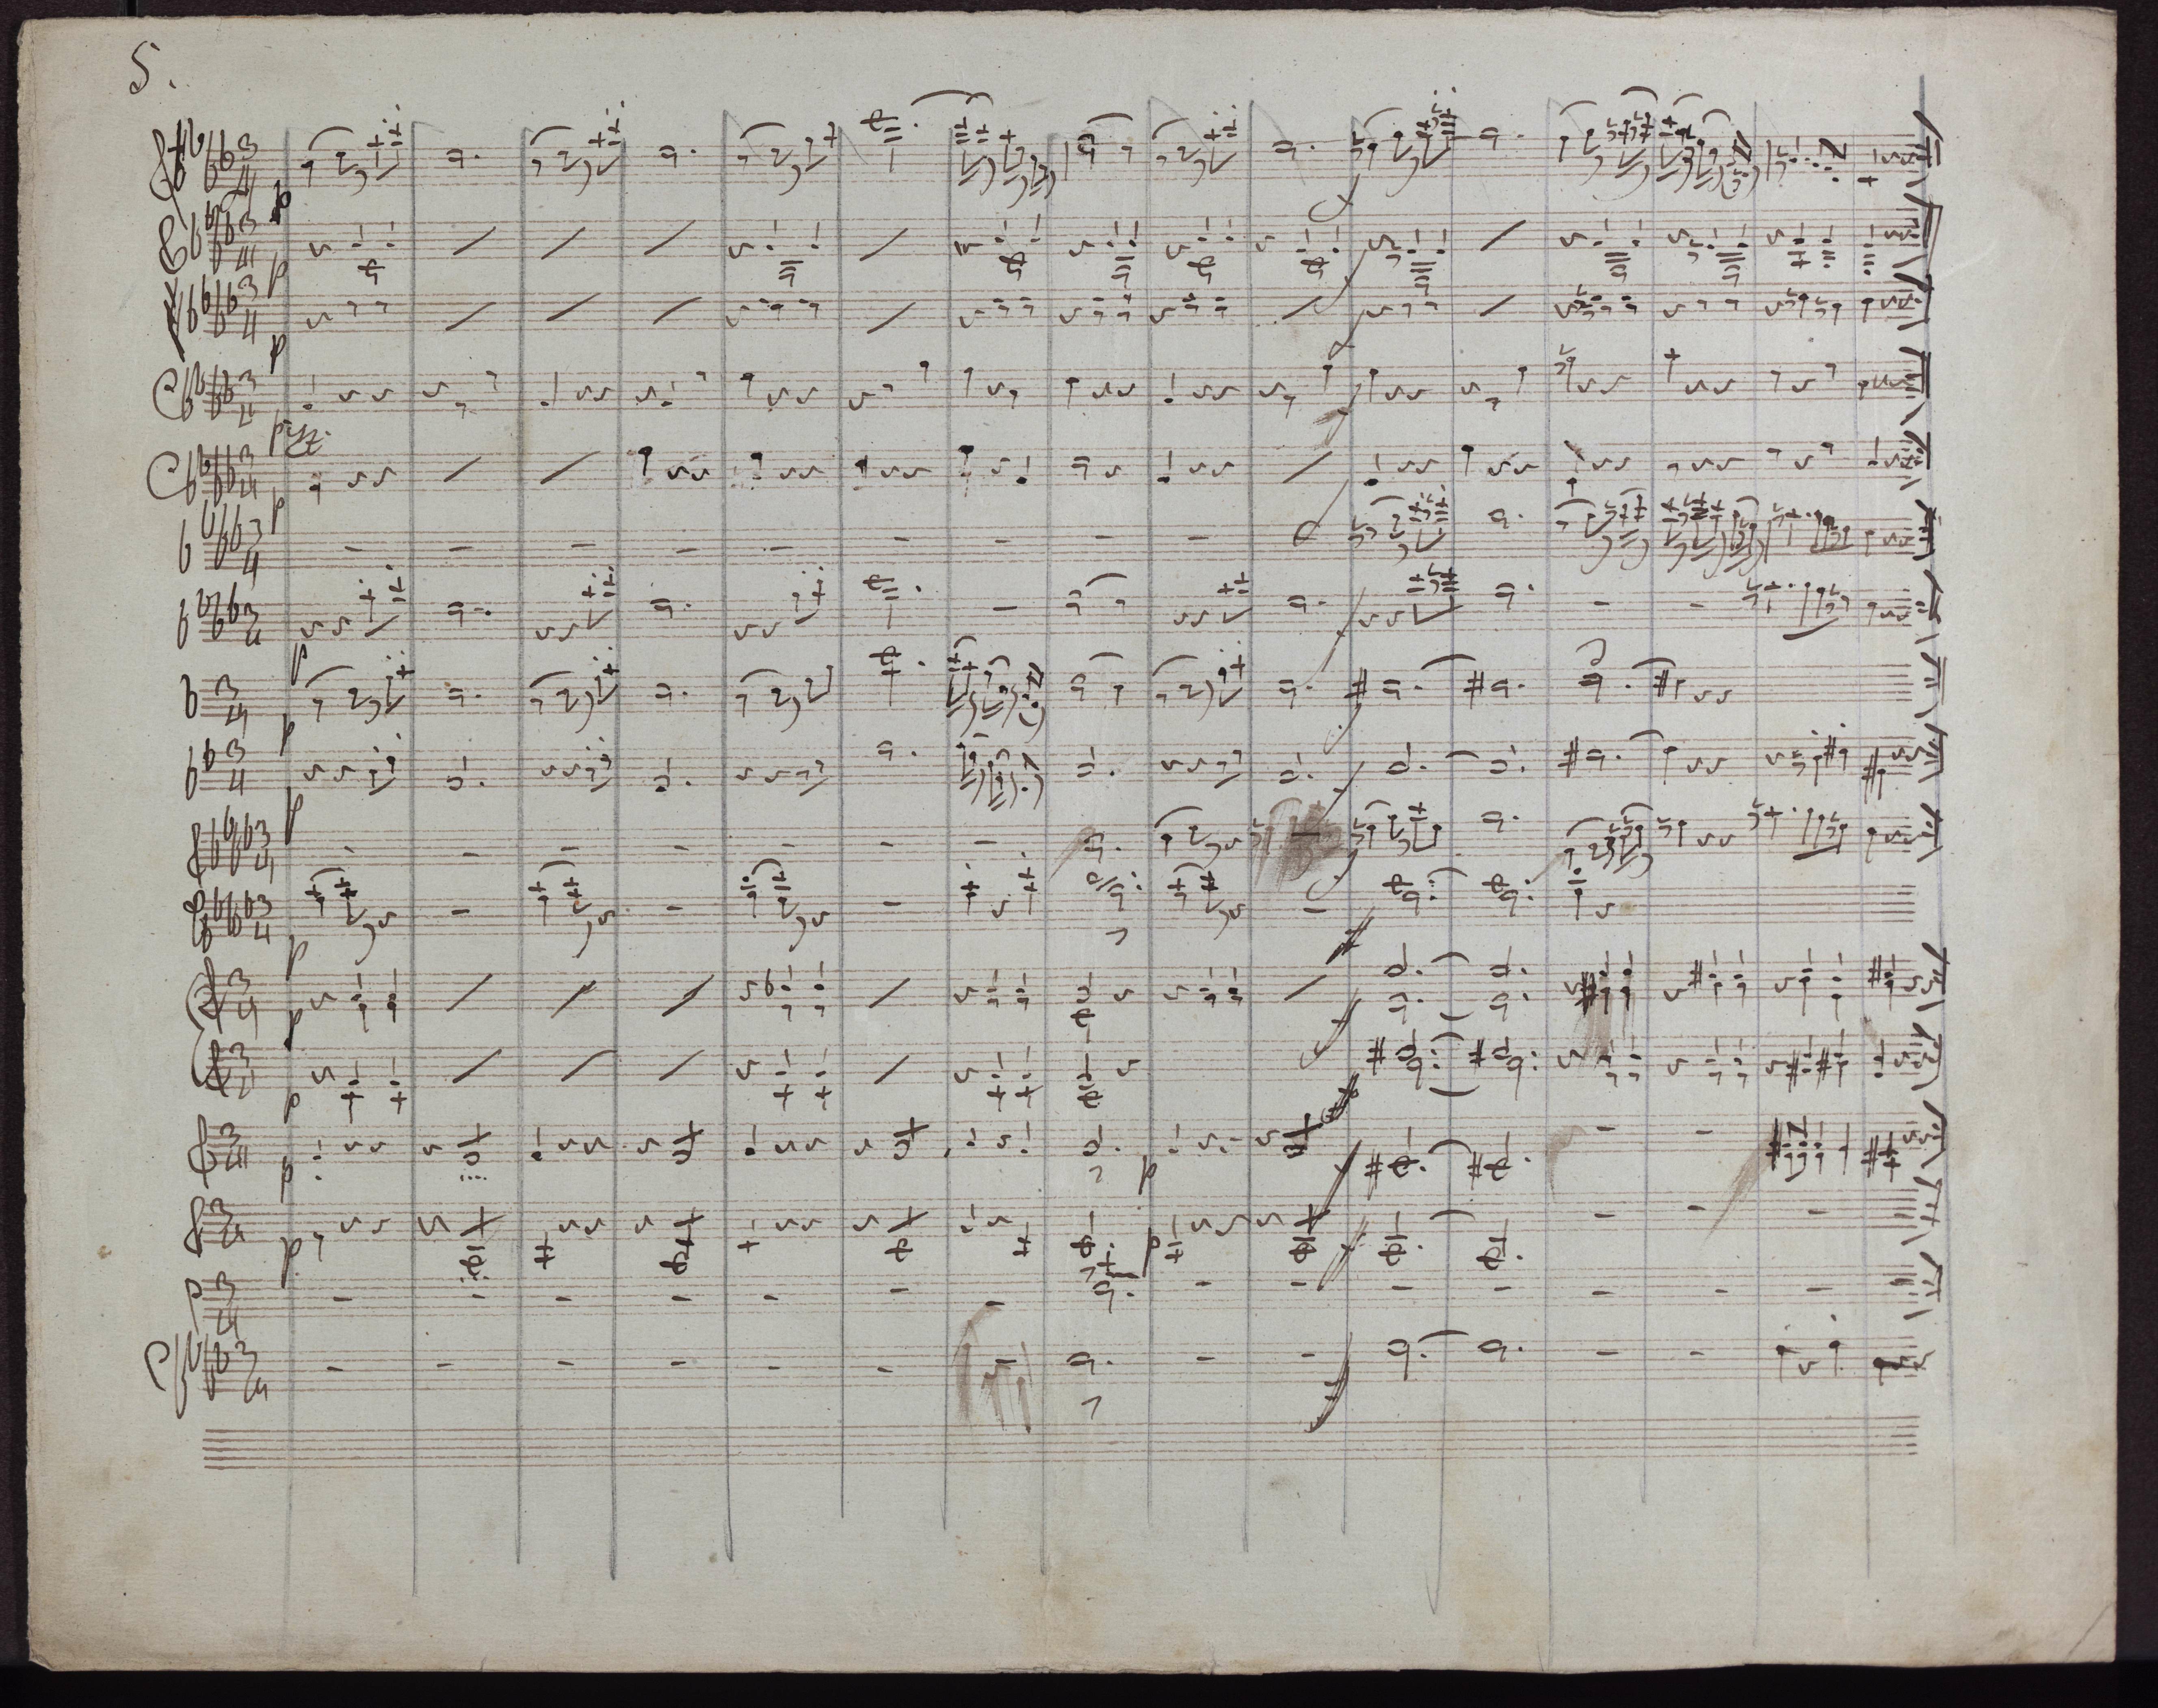 5.
p
p
p
pizz.
p
p
p
p
p
p
p
p
p
p
p
p